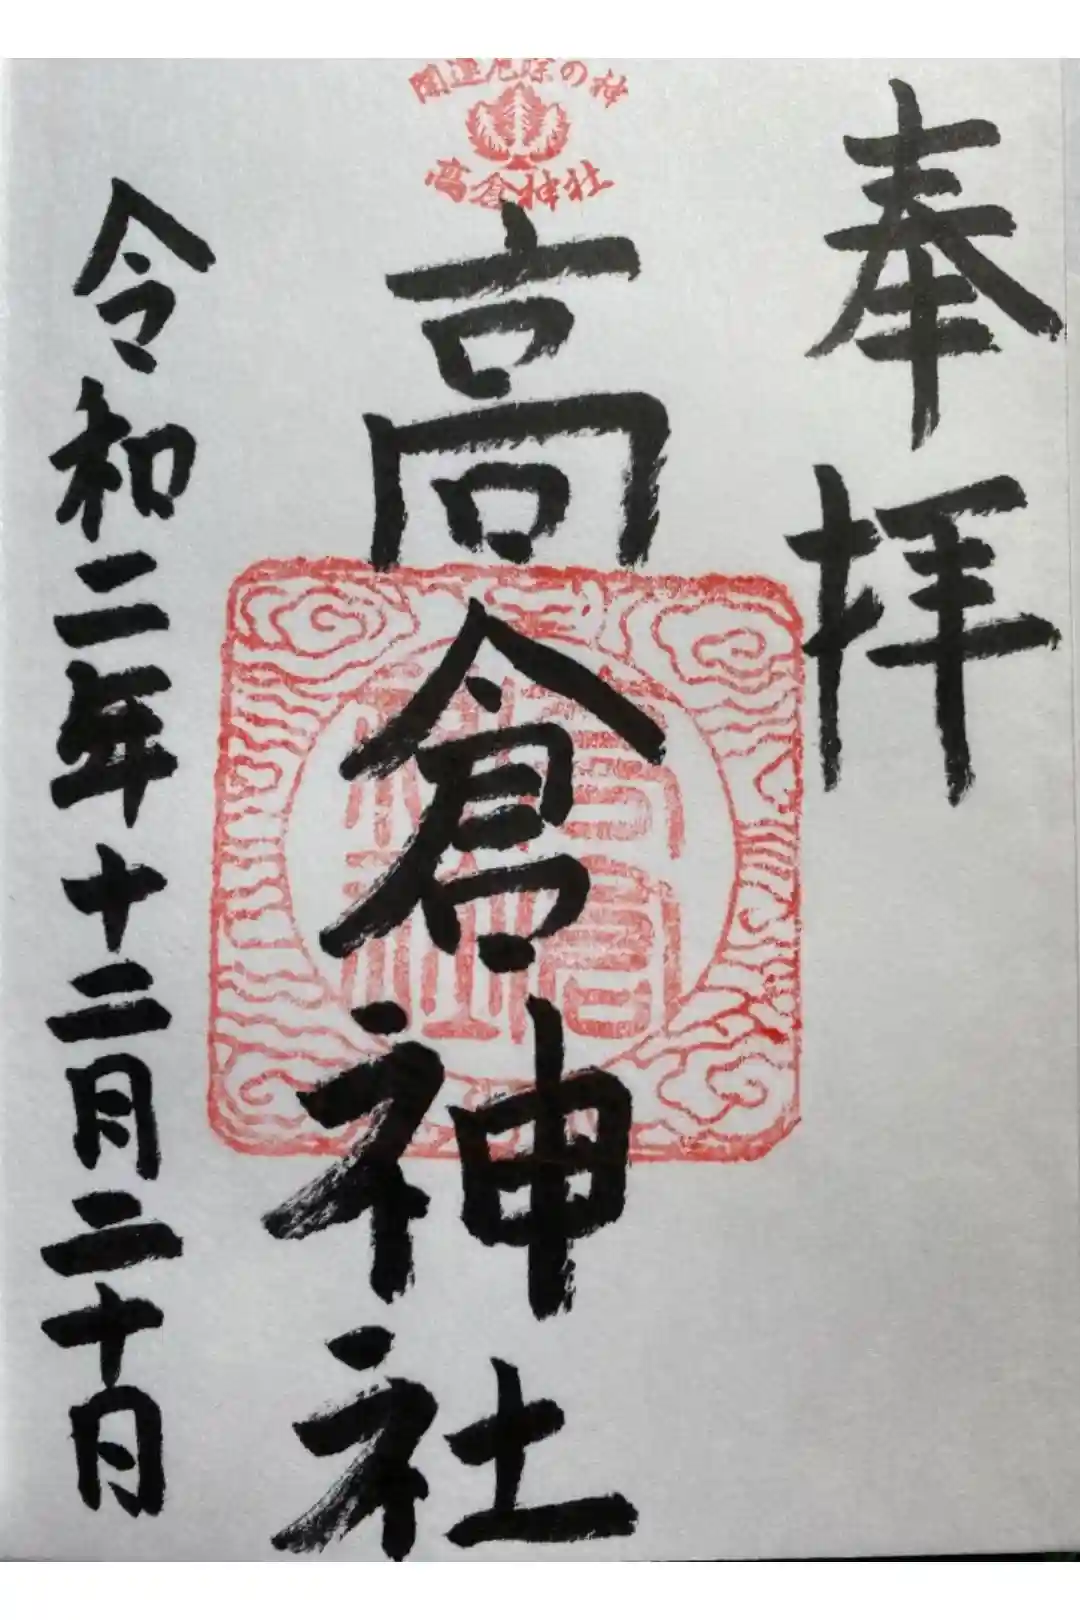 奉拝
開運厄除の神
高倉神社
高倉神社
令和二年十二月二十日